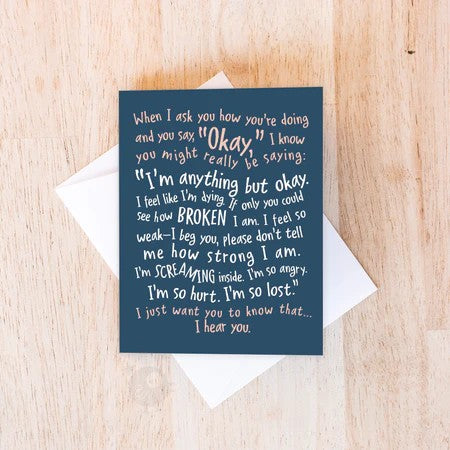 When I ask you how you're doing
and you say, "Okay," I know
you might really be saying:
"I'm anything but okay.
I feel like I'm dying. If only you could
see how BROKEN I am. I feel so
weak—I beg you, please don't tell
me how strong I am.
I'm SCREAMING inside. I'm so angry.
I'm so hurt. I'm so lost."
I just want you to know that...
I hear you.